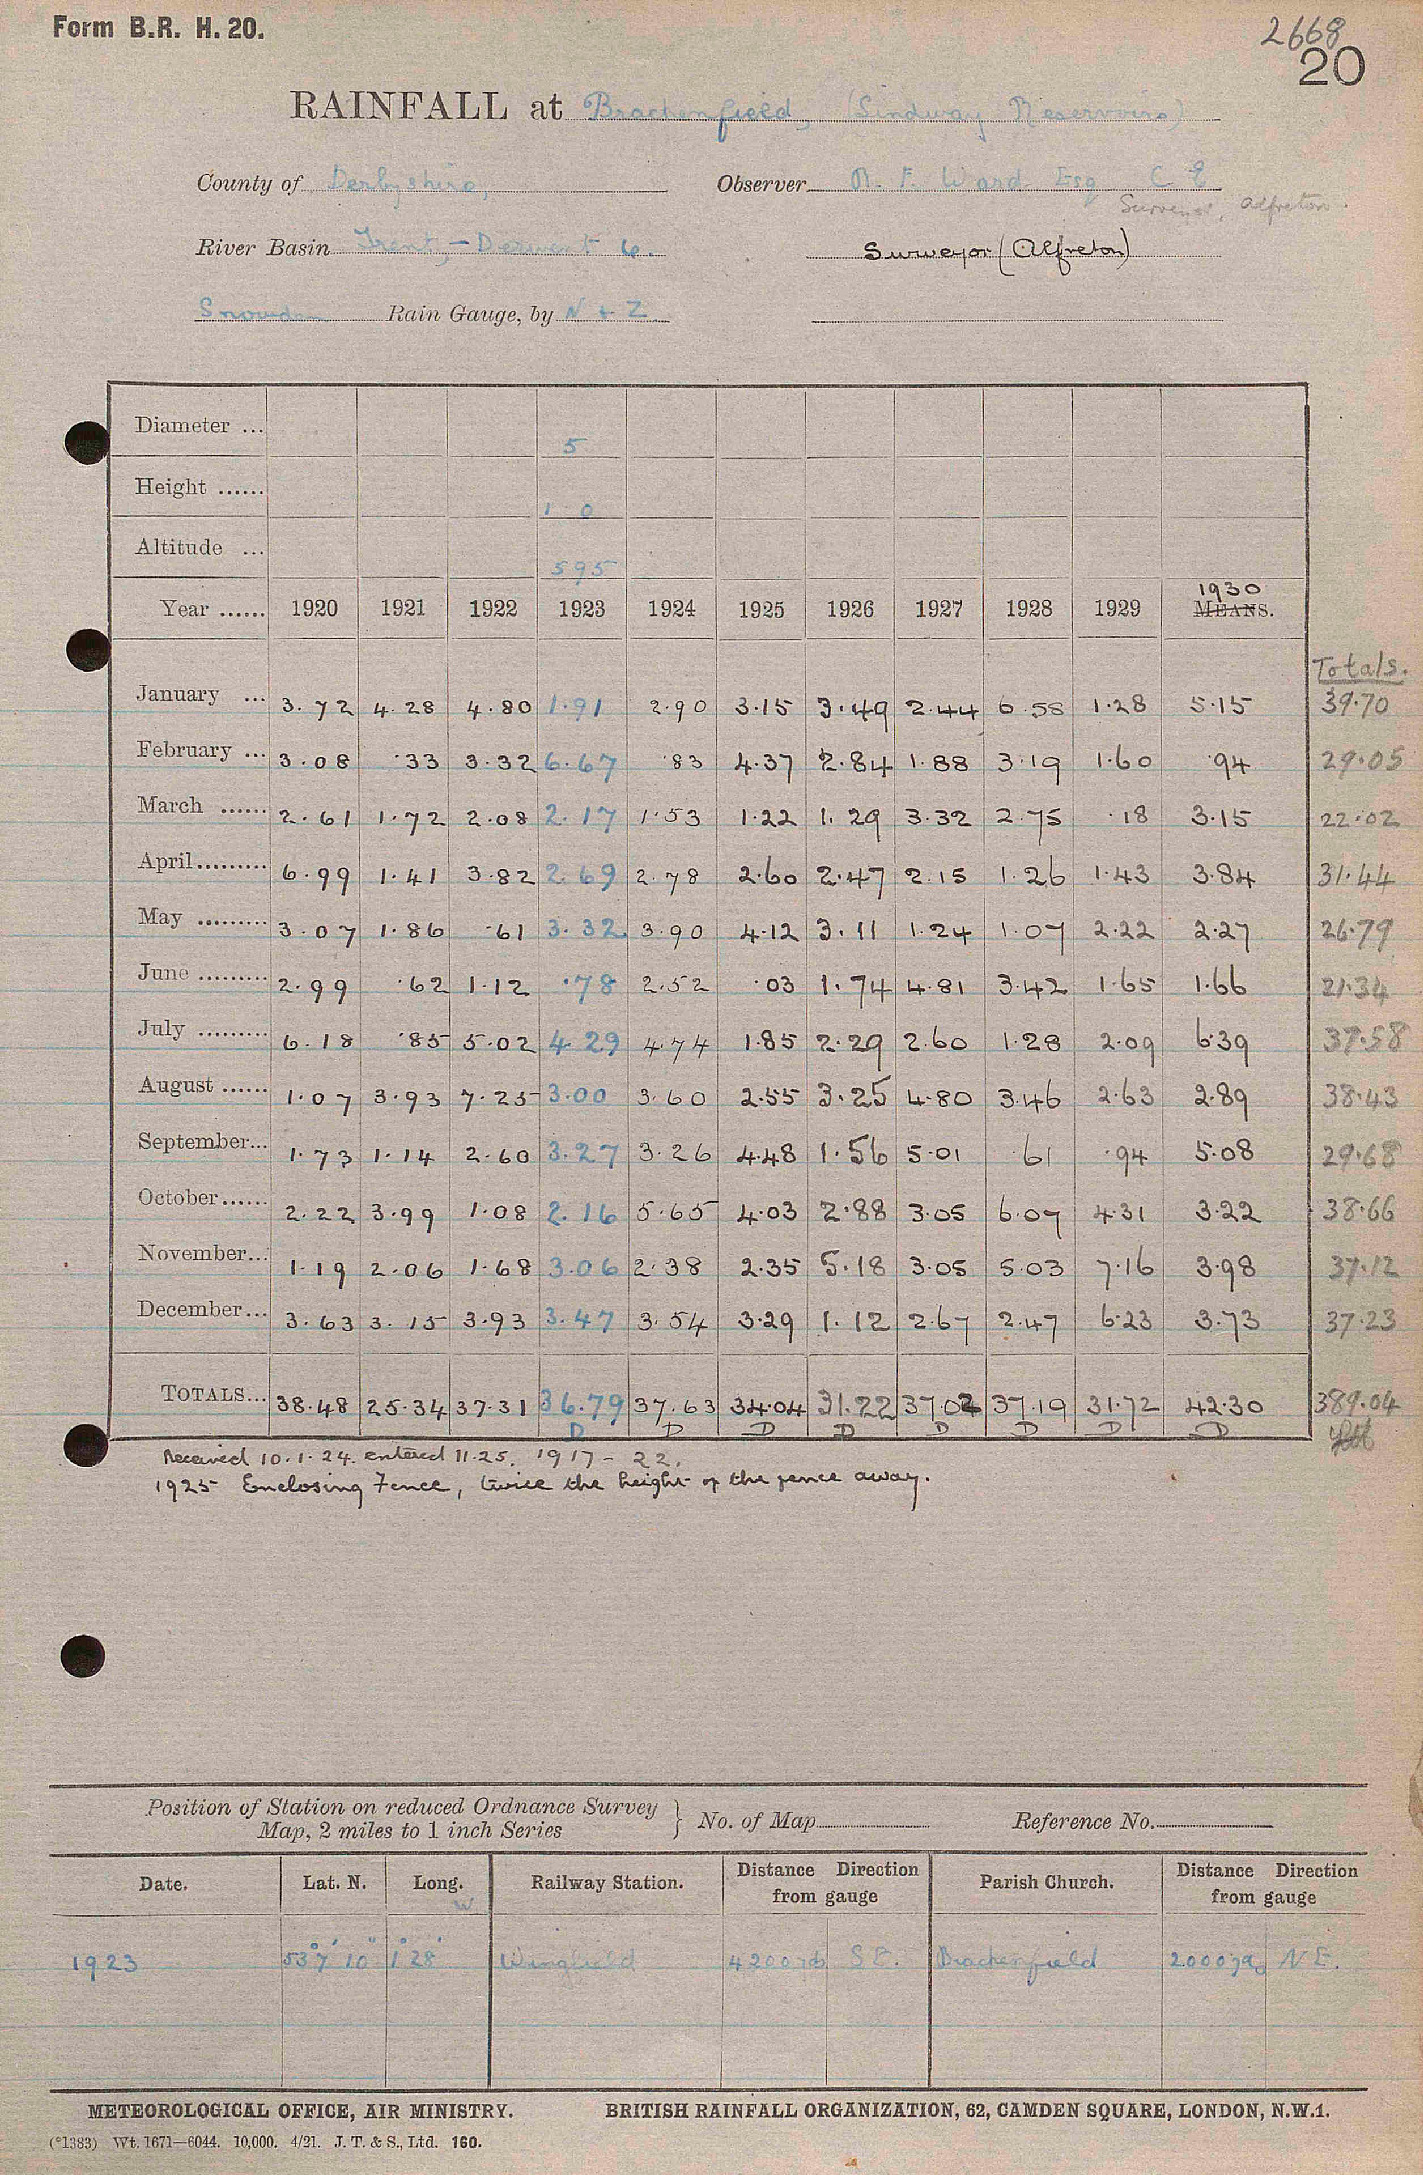 Form B.R. H. 20.
2668
20
RAINFALL at Brackenfield, (Lindway Reservoirs)
County of Derbyshire, Observer R. F. Ward Esq C E
Surveyor, Alfreton.
River Basin Trent, - Derwent 6. Surveyor (Alfreton)
Snowdon Rain Gauge, by N + Z
Diameter ... 5
Height ...... 1 0
Altitude ... 595
1930
Year ...... 1920 1921 1922 1923 1924 1925 1926 1927 1928 1929 MEANS.
Totals.
January ... 3.72 4.28 4.80 1.91 2.90 3.15 3.49 2.44 6.58 1.28 5.15 39.70
February ... 3.08 .33 3.32 6.67 .83 4.37 2.84 1.88 3.19 1.60 .94 29.05
March ...... 2.61 1.72 2.08 2.17 1.53 1.22 1.29 3.32 2.75 .18 3.15 22.02
April ......... 6.99 1.41 3.82 2.69 2.78 2.60 2.47 2.15 1.26 1.43 3.84 31.44
May ......... 3.07 1.86 .61 3.32 3.90 4.12 3.11 1.24 1.07 2.22 2.27 26.79
June ......... 2.99 .62 1.12 .78 2.52 .03 1.74 4.81 3.42 1.65 1.66 21.34
July ......... 6.18 .85 5.02 4.29 4.74 1.85 2.29 2.60 1.28 2.09 6.39 37.58
August ...... 1.07 3.93 7.25 3.00 3.60 2.55 3.25 4.80 3.46 2.63 2.89 38.43
September... 1.73 1.14 2.60 3.27 3.26 4.48 1.56 5.01 .61 .94 5.08 29.68
October...... 2.22 3.99 1.08 2.16 5.65 4.03 2.88 3.05 6.07 4.31 3.22 38.66
November... 1.19 2.06 1.68 3.06 2.38 2.35 5.18 3.05 5.03 7.16 3.98 37.12
December... 3.63 3.15 3.93 3.47 3.54 3.29 1.12 2.67 2.47 6.23 3.73 37.23
TOTALS... 38.48 25.34 37.31 36.79 37.63 34.04 31.22 37.02 37.19 31.72 42.30 389.04
D D D D D D D D
Received 10.1.24. entered 11.25. 1917 - 22.
1925 Enclosing Fence, twice the height of the fence away.
Position of Station on reduced Ordnance Survey Map, 2 miles to 1 inch Series } No. of Map Reference No.
Date. Lat. N. Long. W Railway Station. Distance Direction from gauge Parish Church. Distance Direction from gauge
1923 53° 7' 10" 1° 28' Wingfield 4200 yds S E. Brackenfield 2000 yds N E.
METEOROLOGICAL OFFICE, AIR MINISTRY. BRITISH RAINFALL ORGANIZATION, 62, CAMDEN SQUARE, LONDON, N.W.1.
(*1383) Wt. 1671—6044. 10,000. 4/21. J. T. & S., Ltd. 160.